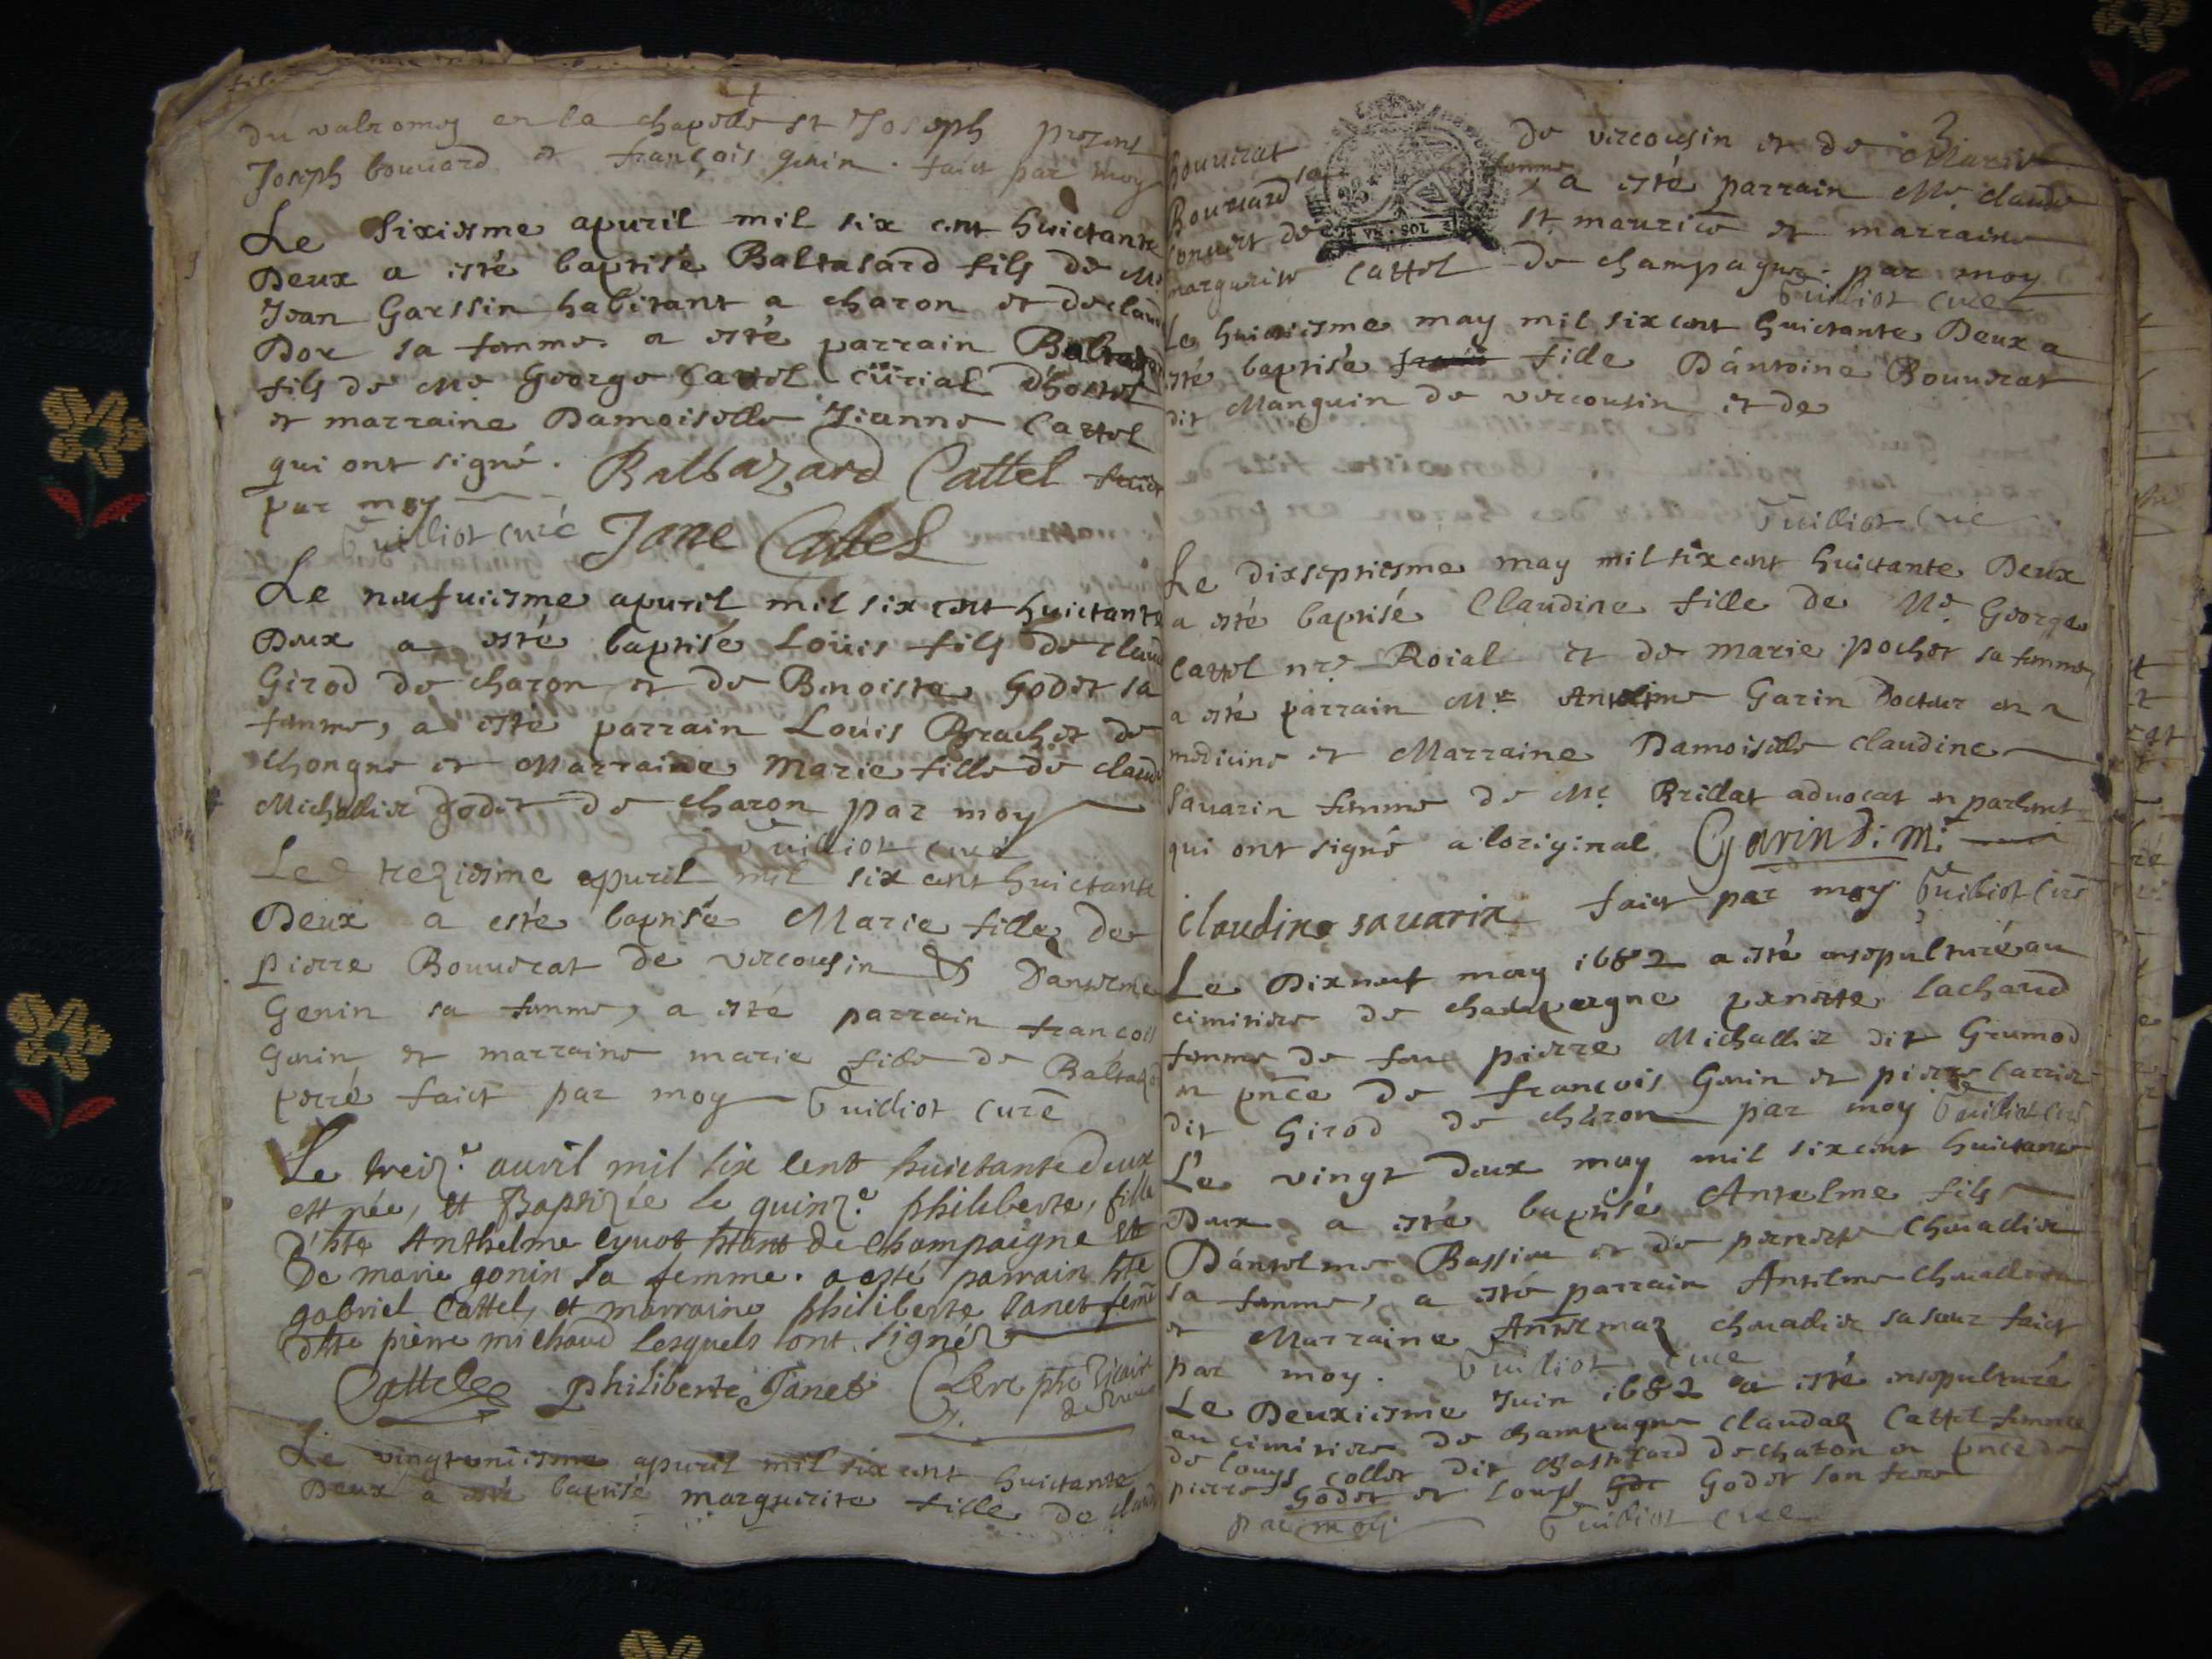 du valromey en la chapelle st Joseph presens
Joseph bouuard et françois genin. faict par moy
Le sixiesme apuril mil six cent huictante
Deux a esté baptisé Baltasard fils de Me
Jean Garssin habitant a charon et de claud
Dor sa femme. a esté parrain
fils de Me George Cattel curial d'hostel
et marraine Damoiselle Jeanne Cattel
qui ont signé. Balthazard Cattel faict
par moy
Guilliot curé Jane Cattel
Le neufuiesme apuril mil six cent huictante
Deux a esté baptisé Loüis fils de claud
Girod de charon et de Benoiste Godet sa
femme, a esté parrain Loüis Brachet de
chongne et Marraine Marie fille de claud
Michallier godet de charon par moy
Guilliot curé
Le treziesme apuril mil six cent huictante
Deux a esté baptisée Marie fille de
pierre Bouuerat de vercousin & D'antelme
Genin sa femme, a esté parrain françois
Genin et marraine marie fille de
perré faict par moy Guilliot curé
Le treiz.e auvril mil six cent huictante deux
est née, et Baptizée le quinz.e philiberte, fille
d'hte Anthelme cyuot htant de Champaigne et
De marie gonin sa femme. a esté parrain hte
gabriel Cattel, et marraine philiberte Janet feme
d'hte pierre michaud lesquels ont signéz
Cattel philiberte Janet Clerc pbre vicaire
Le vingtuniesme apuril mil six cent huictante
Deux a esté baptisé marguerite fille de claud
3
Bouuerat de vercousin et de Marie
Bouuard sa femme, a esté parrain Me. claude
conuert de st. maurice et marraine
VN SOL
marguerite Cattel de champagne. par moy
Guilliot curé
Le huictiesme may mil six cent huictante Deux a
esté baptisée fille D'antoine Bouuerat
dit Manguin de vercousin et de
Guilliot curé
Le dixseptiesme may mil six cent huictante Deux
a esté baptisé Claudine fille de Me George
Cattel nre. Roial et de marie pochet sa femme
a esté parrain Me Antelme Garin Docteur en
medicine et Marraine Damoiselle claudine
Sauarin femme de Me Brillat aduocat en parlemt
qui ont signé a loriginal Garin D. M.
claudine sauarin faict par moy Guilliot curé
Le Dixneuf may 1682 a esté ensepulturé au
cimitiere de champagne pernette Lachard
femme de feu pierre Michallier dit Grumod
en pnce de françois Genin et pierre Carrier
dit Girod de charon par moy Guilliot curé
Le vingt deux may mil six cent huictante
Deux a esté baptisé Antelme fils
D'antelme Bassieu et de pernette Cheuallier
sa femme, a esté parrain Antelme cheuallier
et Marraine Antelmaz cheuallier sa sœur faict
par moy. Guilliot curé
Le Deuxiesme Juin 1682 a esté ensepulturé
au cimitiere de champagne claudaz Cattel femme
de Louys collet dit de charon en pnce de
pierre Godet et Louys Godet son frere
par moy Guilliot curé